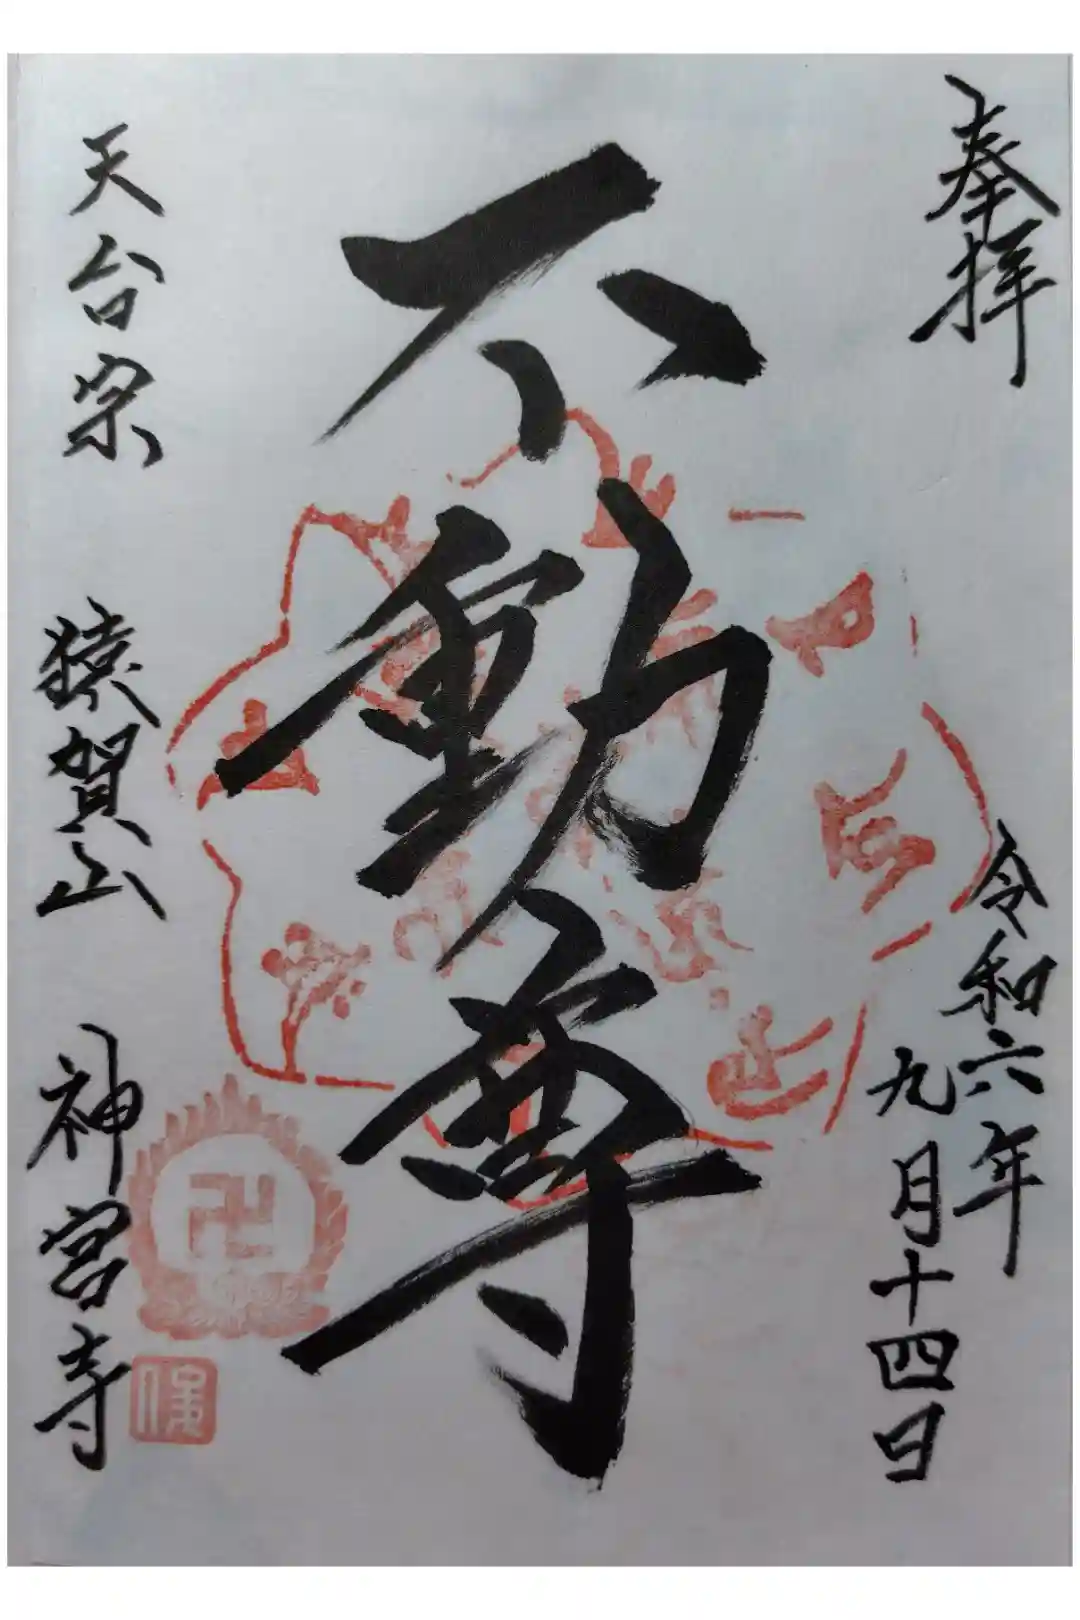 奉拝
令和六年
九月十四日
不動尊
天台宗 猿賀山 神宮寺
卍